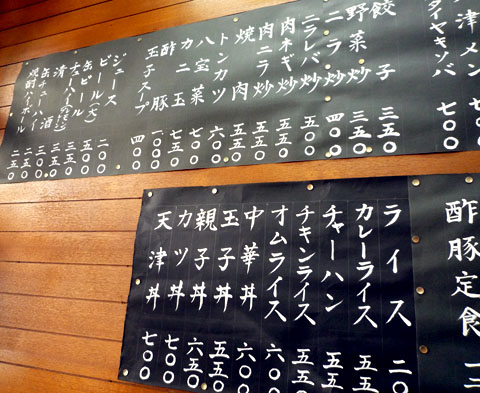 津メン 七〇〇
タイヤキソバ 七〇〇
餃子 三五〇
野菜炒 三五〇
ニラ炒
ニラレバ炒 五〇〇
肉ネギ炒 五五〇
肉ニラ炒 五五〇
焼肉 五五〇
トンカツ 六〇〇
八宝菜 七〇〇
カニ玉 七五〇
酢豚 一〇〇〇
玉子スープ 四〇〇
ジュース 二〇〇
ビール(大) 五五〇
缶ビール 三五〇
チューハイ 三五〇
清酒 三〇〇
缶チューハイ 二五〇
焼酎ハイボール 二五〇
酢豚定食 一
ライス 二〇
カレーライス 五五
チャーハン 五五
チキンライス 五五〇
オムライス 六〇〇
中華丼 六〇〇
玉子丼 五五〇
親子丼 六五〇
カツ丼 七〇〇
天津丼 七〇〇